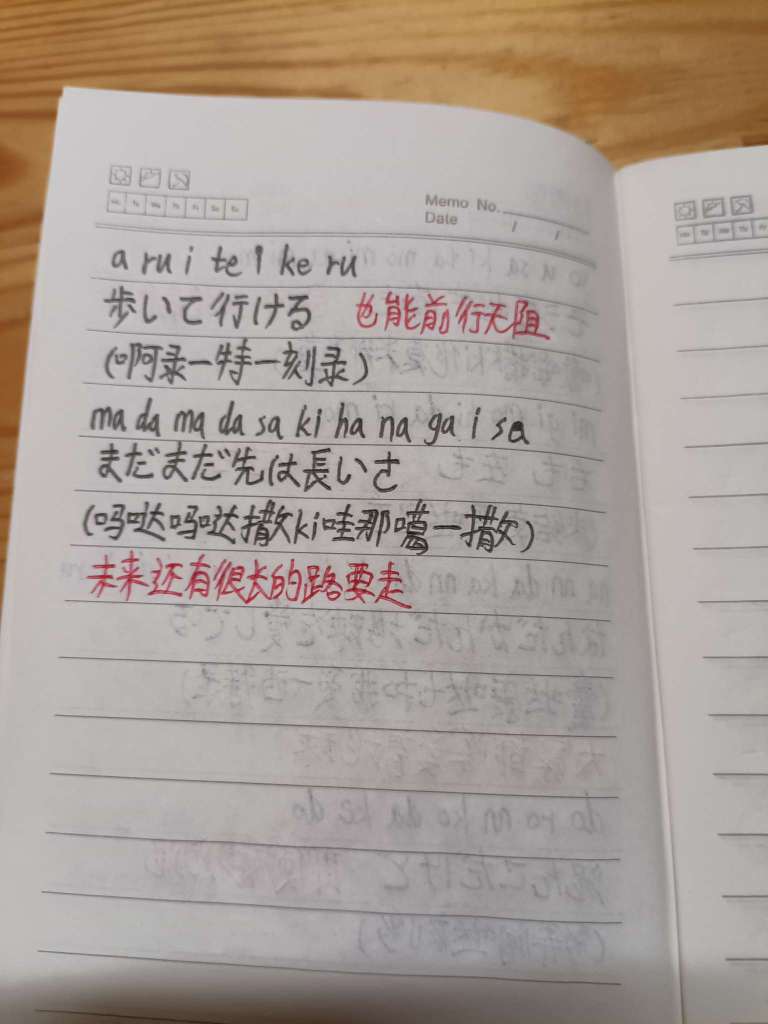 Memo No.
Date / /
a ru i te i ke ru
歩いて行ける 也能前行无阻
(啊录一特一刻录)
ma da ma da sa ki ha na ga i sa
まだまだ先は長いさ
(吗哒吗哒撒ki哇那噶一撒)
未来还有很长的路要走